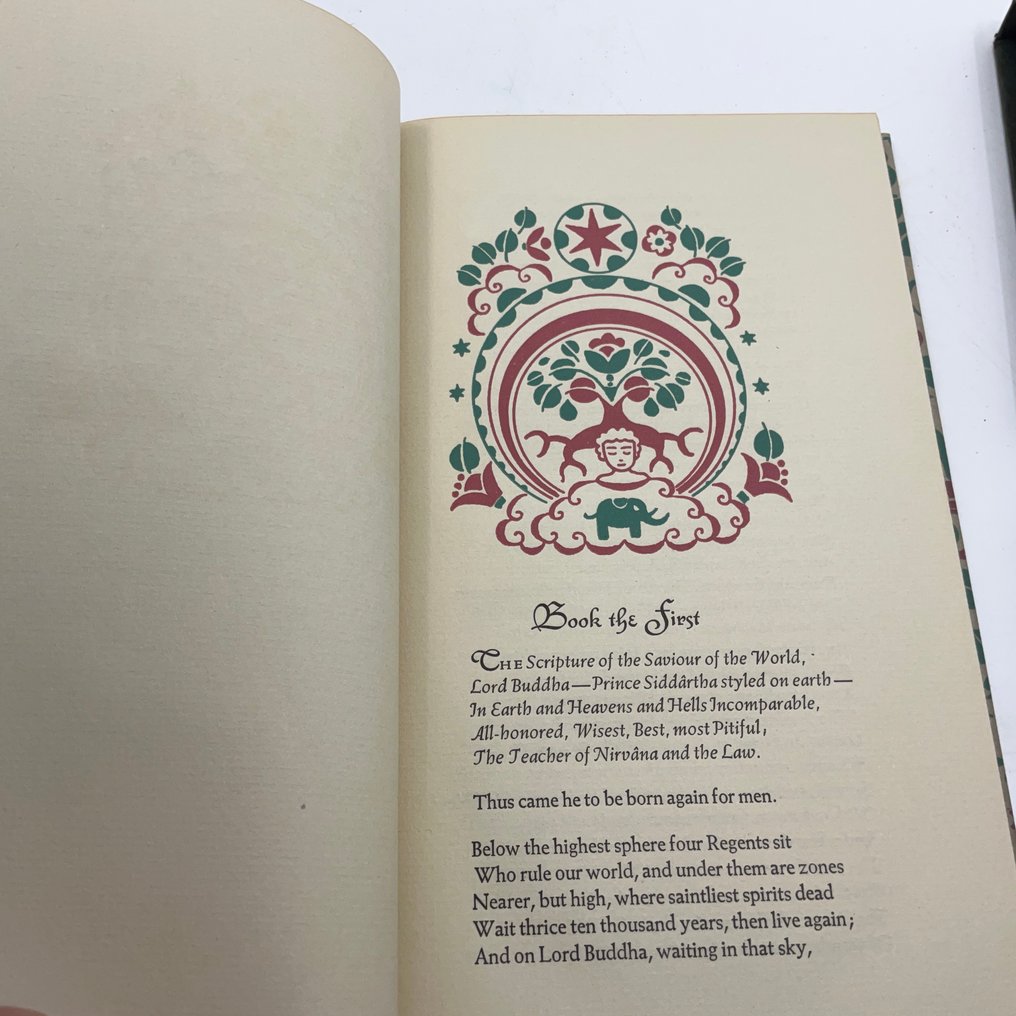 Book the First
THE Scripture of the Saviour of the World,
Lord Buddha—Prince Siddârtha styled on earth—
In Earth and Heavens and Hells Incomparable,
All-honored, Wisest, Best, most Pitiful,
The Teacher of Nirvâna and the Law.
Thus came he to be born again for men.
Below the highest sphere four Regents sit
Who rule our world, and under them are zones
Nearer, but high, where saintliest spirits dead
Wait thrice ten thousand years, then live again;
And on Lord Buddha, waiting in that sky,